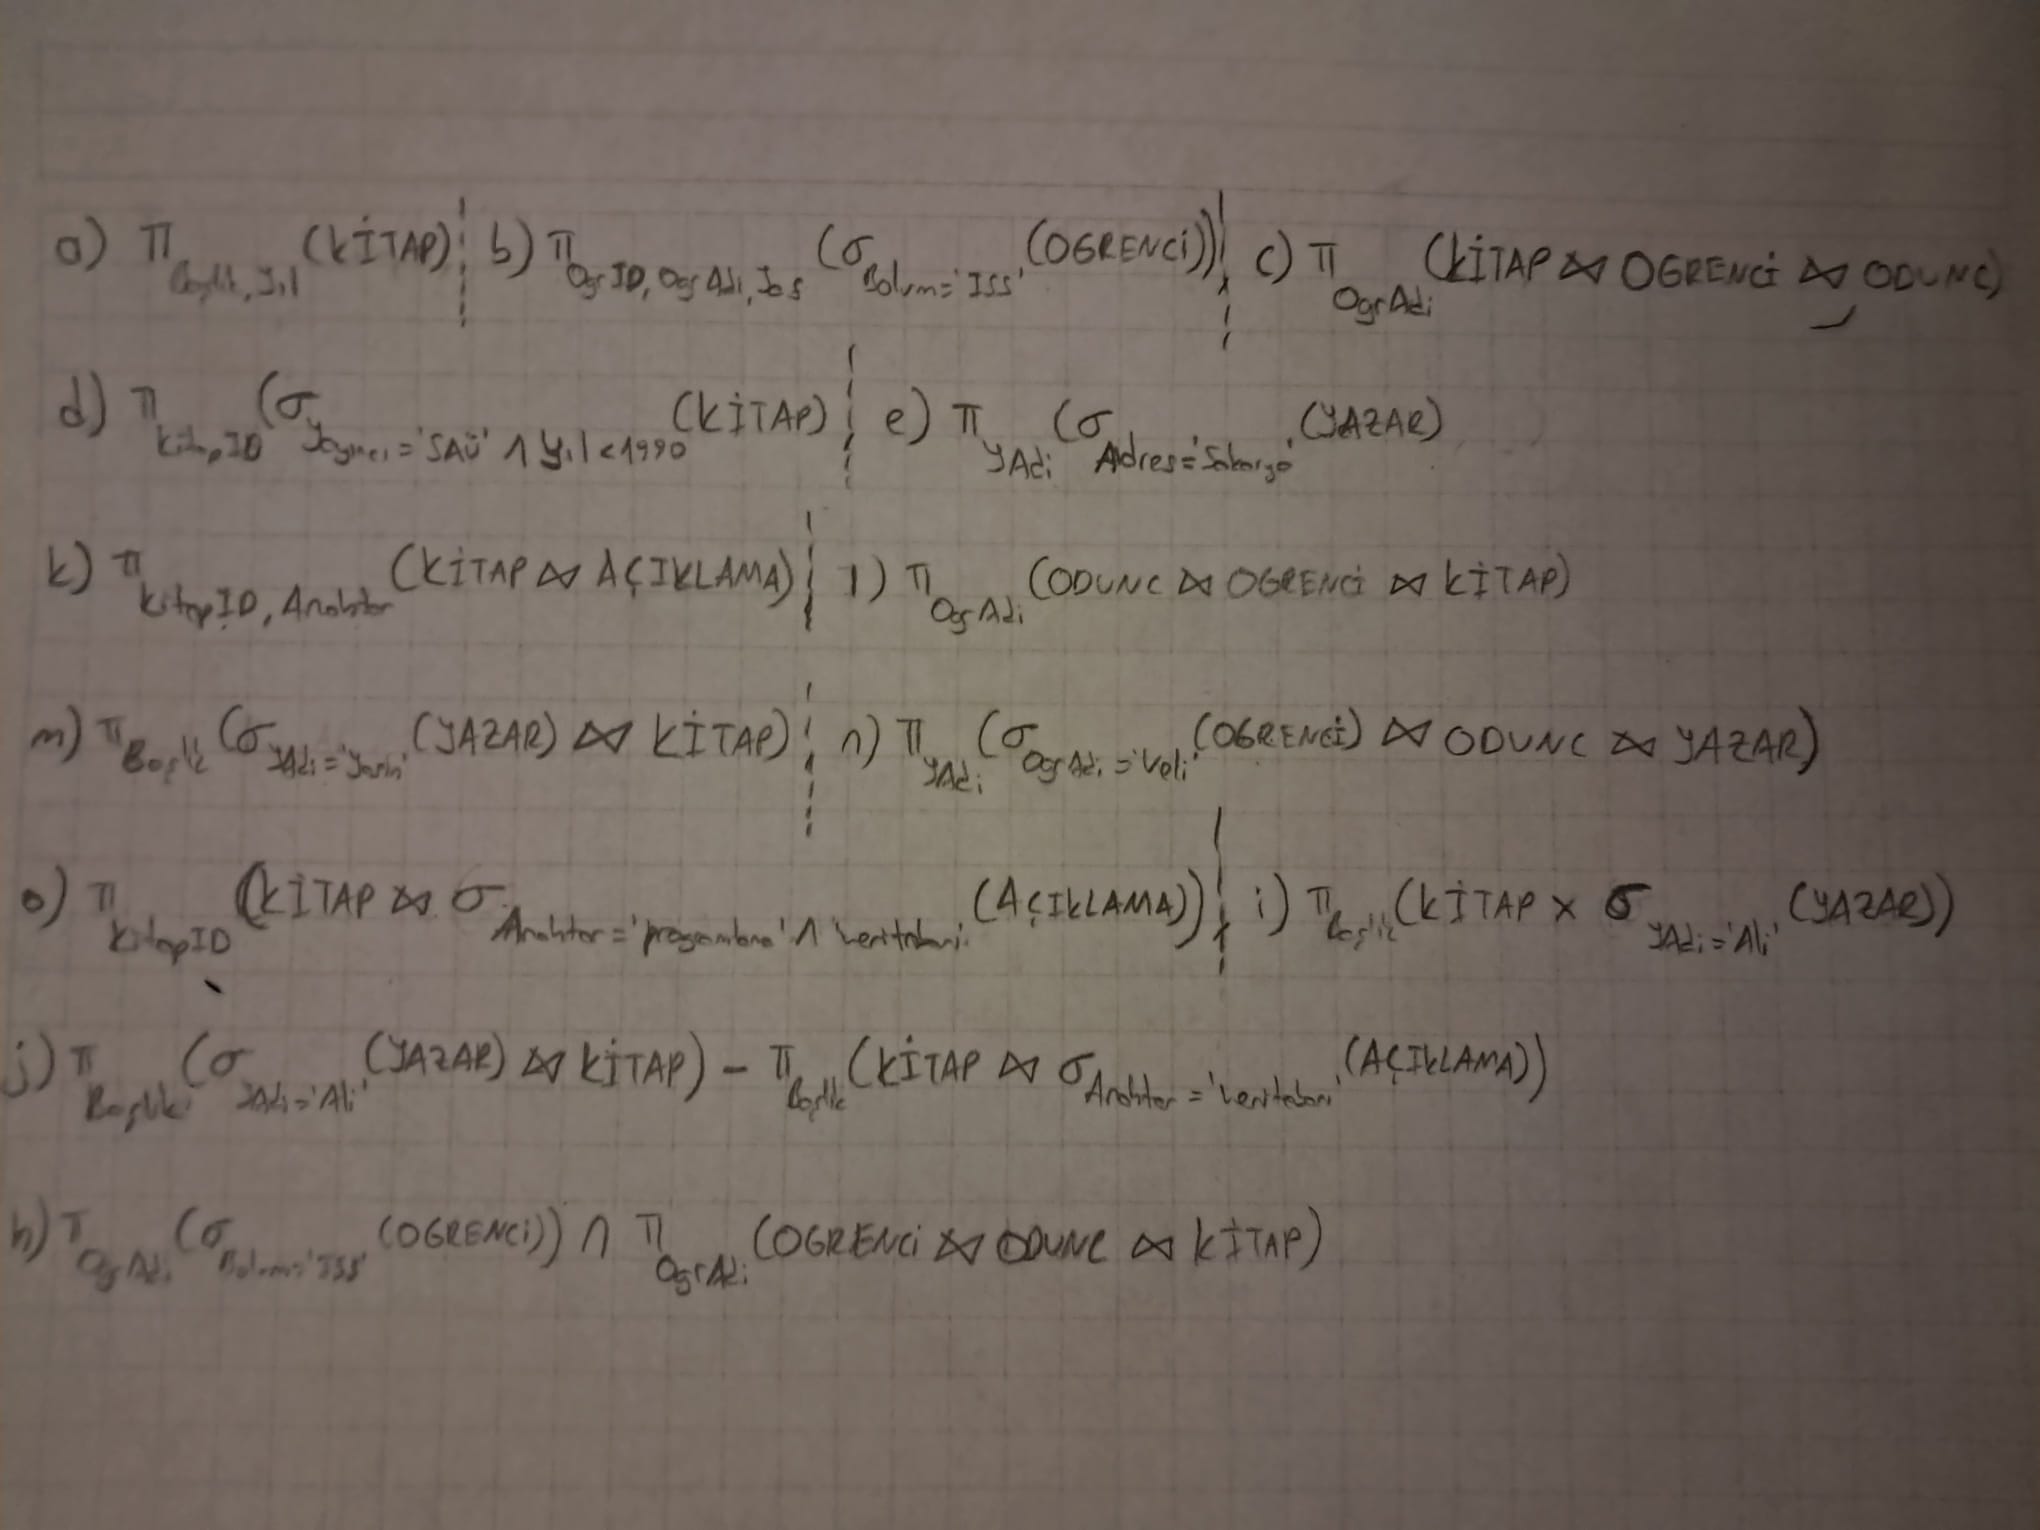 a) π Başlık, Yıl (KİTAP) b) π OgrID, OgrAdi, Yas (σ Bolum='ISS' (OGRENCİ)) c) π OgrAdi (KİTAP ⋈ OGRENCİ ⋈ ODUNC)
d) π KitapID (σ Yayıncı='SAÜ' ∧ Yıl<1990 (KİTAP) e) π YAdi (σ Adres='Sakarya' (YAZAR)
k) π KitapID, Anahtar (KİTAP ⋈ AÇIKLAMA) l) π OgrAdi (ODUNC ⋈ OGRENCİ ⋈ KİTAP)
m) π Başlık (σ YAdi= (YAZAR) ⋈ KİTAP) n) π YAdi (σ OgrAdi='Veli' (OGRENCİ) ⋈ ODUNC ⋈ YAZAR)
o) π KitapID (KİTAP ⋈ σ Anahtar= ∧ 'veritabani' (AÇIKLAMA)) i) π Başlık (KİTAP x σ YAdi='Ali' (YAZAR))
j) π Başlık (σ YAdi='Ali' (YAZAR) ⋈ KİTAP) - π Başlık (KİTAP ⋈ σ Anahtar='veritabani' (AÇIKLAMA))
h) π OgrAdi (σ Bolum='ISS' (OGRENCİ)) ∩ π OgrAdi (OGRENCİ ⋈ ODUNC ⋈ KİTAP)